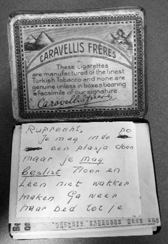 CARAVELLIS FRÈRES
These Cigarettes
are manufactured of the finest
Turkish Tobacco and none are
genuine unless in boxes bearing
a facsimile of our signature.
Caravellis Frères
Je mag in
een plasje doen
maar je mag
Beslist Noor en
Leen niet wakker
maken Ga weer
naar bed tot je